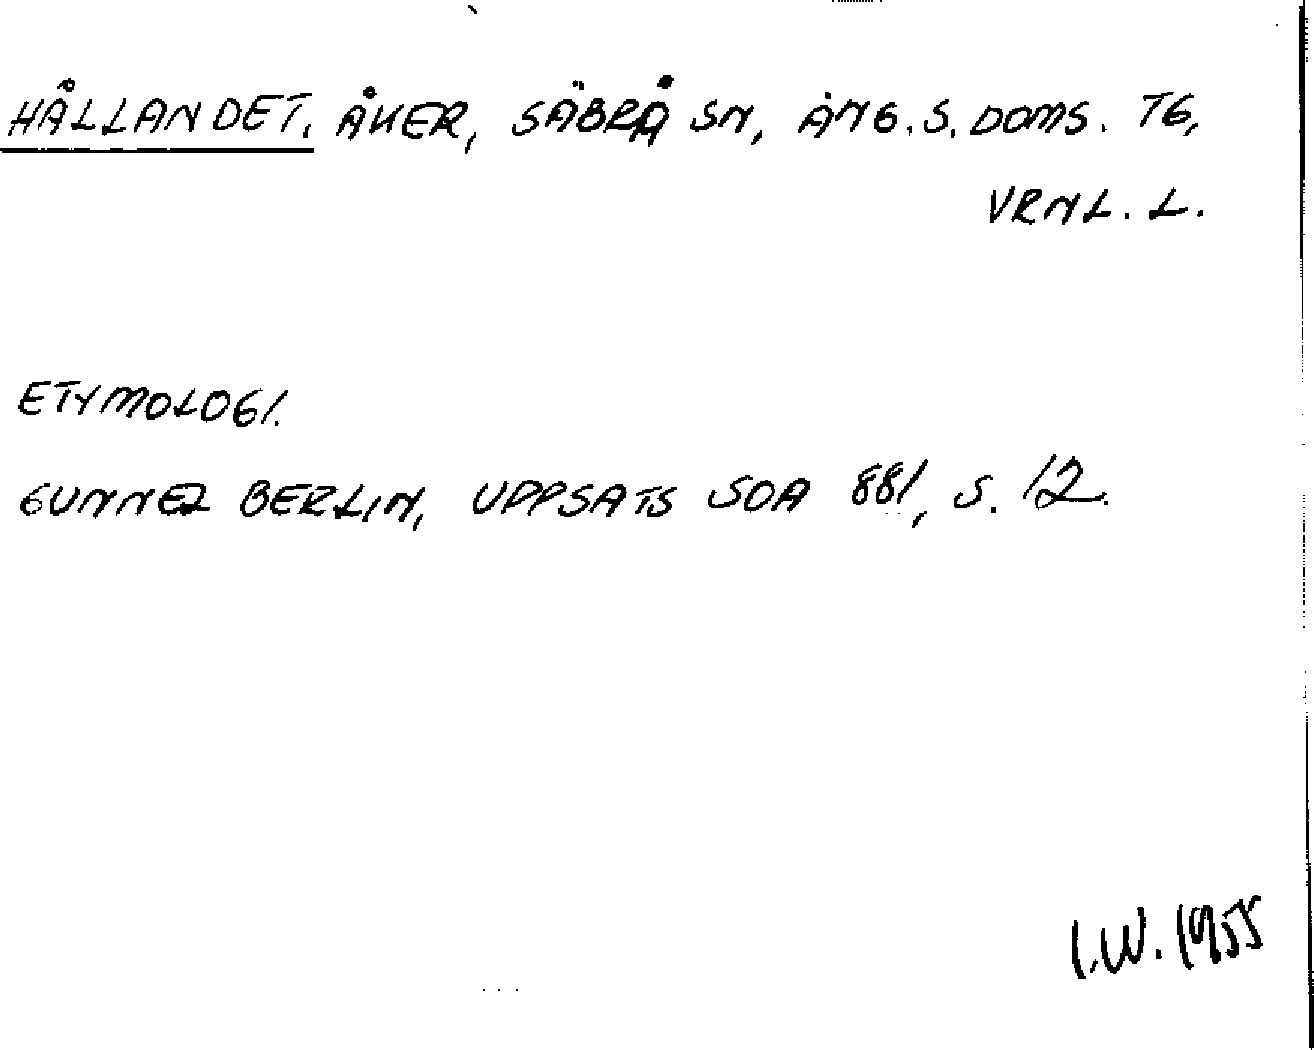 HÅLLANDET, ÅKER, SÄBRÅ SN, ÅNG. S. DOMS. TG,
VRNL. L.
ETYMOLOGI.
GUNNEL BERLIN, UPPSATS SOA 881, S. 12.
I.W. 1955